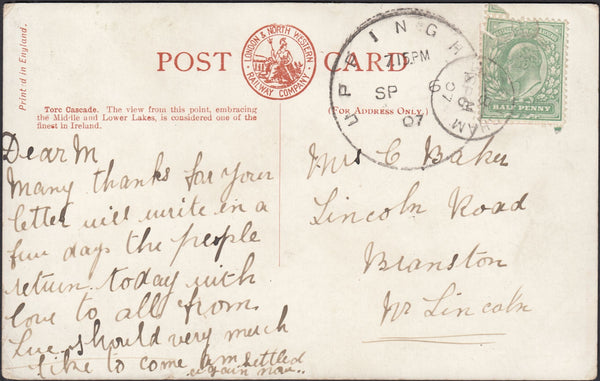 Printed in England.
POST CARD
LONDON & NORTH WESTERN
RAILWAY COMPANY
Torc Cascade. The view from this point, embracing
the Middle and Lower Lakes, is considered one of the
finest in Ireland.
(FOR ADDRESS ONLY.)
UPPINGHAM
7.15 PM
SP
07
HALF PENNY
Dear M
Many thanks for your
letter will write in a
few days the people
return today with
love to all from
should very much
like to come am settled
again now..
Mrs C Baker
Lincoln Road
Branston
Nr Lincoln